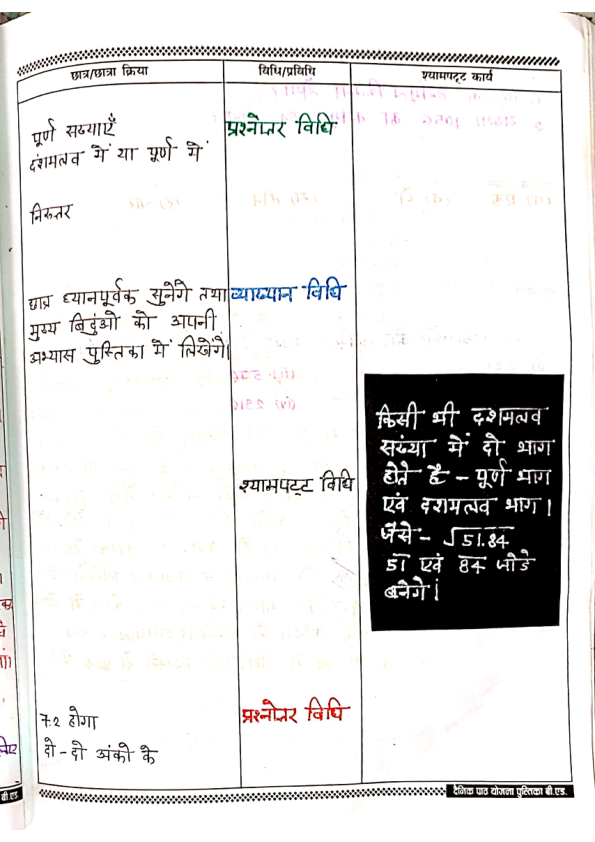 छात्र/छात्रा क्रिया
विधि/प्रविधि
श्यामपट्ट कार्य
पूर्ण सख्याएँ
दंशमलव में या पूर्ण में
प्रश्नोतर विधि
निरूतर
छात्र ध्यानपूर्वक सुनेगे तथा
मुख्य बिदुंओ को अपनी
अभ्यास पुस्तिका में लिखेगे।
व्याख्यान विधि
श्यामपट्ट विधि
किसी भी दशमलव
सख्ंया में दो भाग
होते है - पूर्ण भाग
एवं दशमलव भाग।
जैसे - √51.84
51 एवं 84 जोडे
बनेगे।
7.2 होगा
दो - दो अंको के
प्रश्नोतर विधि
बी.एड.
दैनिक पाठ योजना पुस्तिका बी.एड.